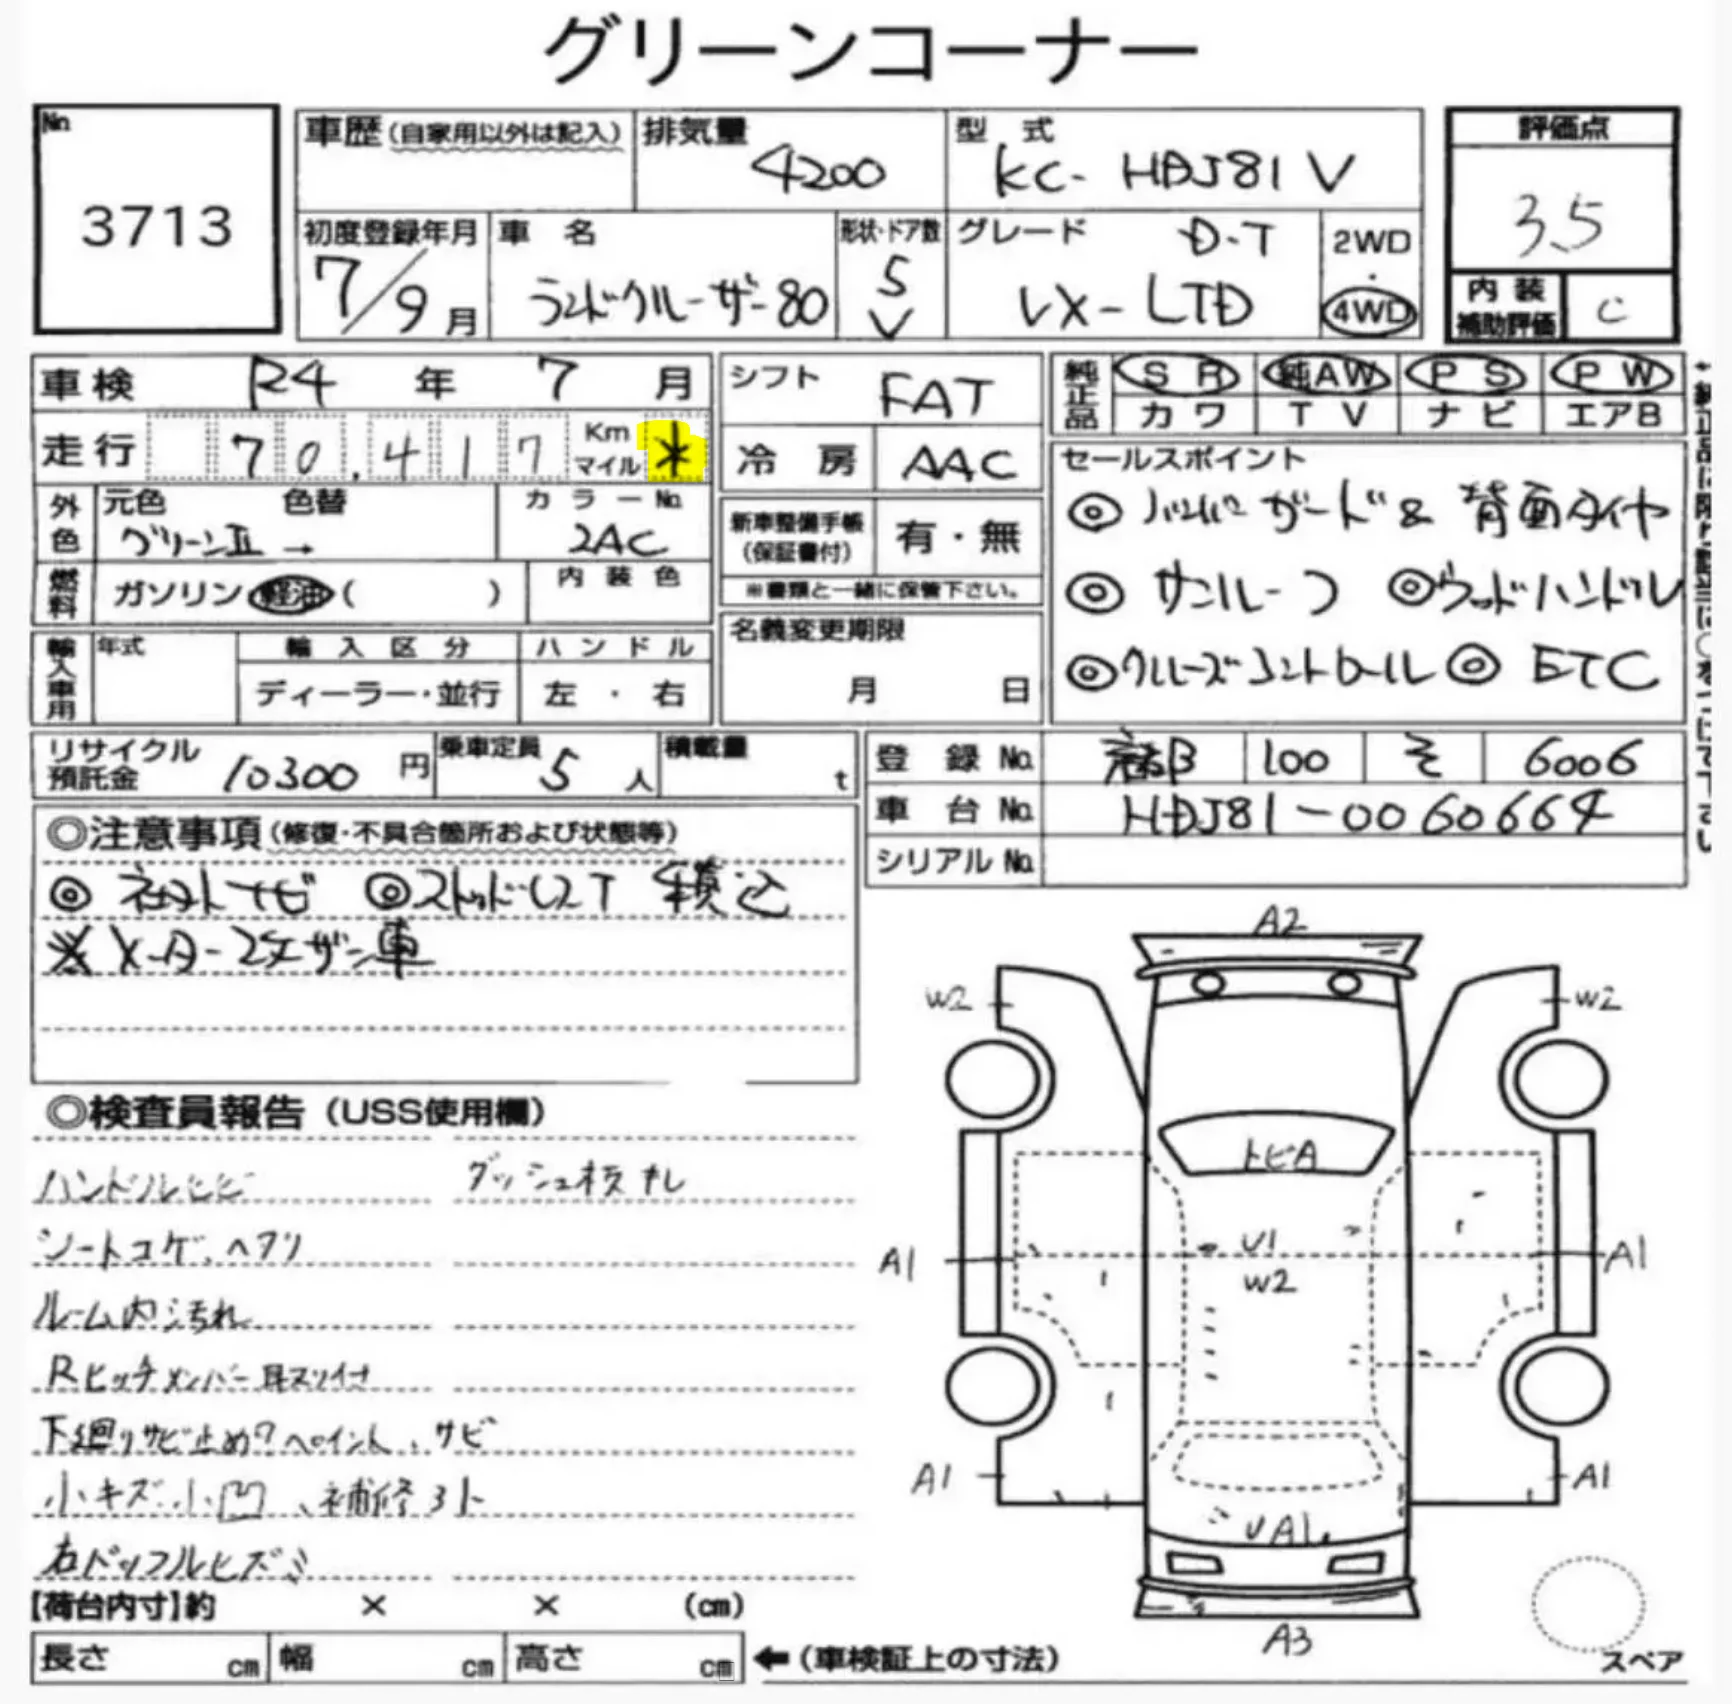 グリーンコーナー
No. 3713
車歴(自家用以外は記入)
排気量 4200
型式 KC-HDJ81V
評価点 3.5
内装補助評価 C
初度登録年月 7/9月
車名 ランドクルーザー80
形状・ドア数 5 V
グレード D-T VX-LTD
2WD・4WD
車検 R4年 7月
走行 70,417 Km マイル *
シフト FAT
冷房 AAC
純正品 SR 純AW PS PW
カワ TV ナビ エアB
セールスポイント
◎バンパーガード& 背面タイヤ
◎サンルーフ ◎ウッドハンドル
◎クルーズコントロール ◎ETC
外色 元色 色替 グリーンⅡ→
カラーNo. 2AC
燃料 ガソリン 軽油( )
内装色
新車整備手帳(保証書付) 有・無
※書類と一緒に保管下さい。
名義変更期限 月 日
輸入車用 年式 輸入区分 ハンドル
ディーラー・並行 左・右
リサイクル預託金 10300円
乗車定員 5人
積載量 t
登録No. 100 そ 6006
車台No. HDJ81-0060664
シリアルNo.
◎注意事項(修復・不具合箇所および状態等)
◎社外ナビ ◎スタッドレスT 積込
※メーター改ザン車
◎検査員報告(USS使用欄)
ハンドルヒビ ダッシュ板キレ
シートコゲ、ヘタリ
ルーム内汚れ
Rヒッチメンバー取付
下廻りサビ止め?ペイント、サビ
小キズ、小凹、補修アト
【荷台内寸】約 × × (cm)
長さ cm 幅 cm 高さ cm
←(車検証上の寸法)
A2
W2 W2
トビA
A1 U1 A1
W2
A1 UA1 A1
A3
スペア